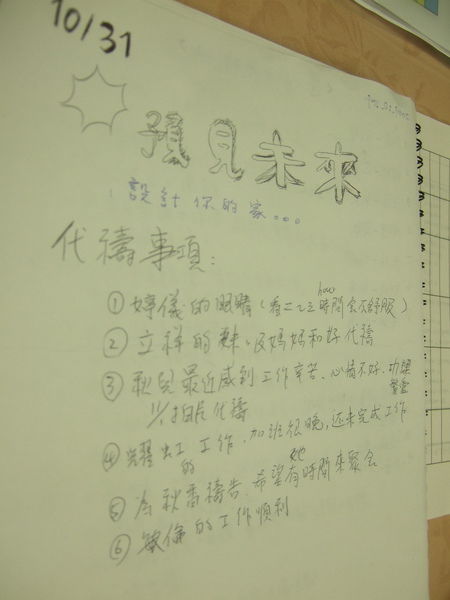 10/31
預見未來
設計你的家...
代禱事項:
① 婷儀的眼睛(看一乙立時間會不舒服)
hour
② 立祥的妹、及媽媽和好代禱
③ 秋兒最近感到工作辛苦、心情不好、功課
代禱
④ 耀虹工作、加班很晚,还未完成工作
的
⑤ 為秋香禱告、希望有時間來聚会
她
⑥ 敏倫的工作順利